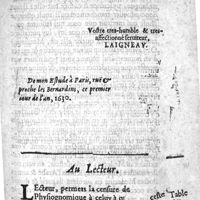 Vostre tres-humble & tres-
affectionné serviteur,
LAIGNEAV.
De mon Estude à Paris, ruë &
proche les Bernardins, ce premier
jour de l'an, 1650.
Au Lecteur.
LEcteur, permets la censure de
Physiognomique à celuy à
ceste Table